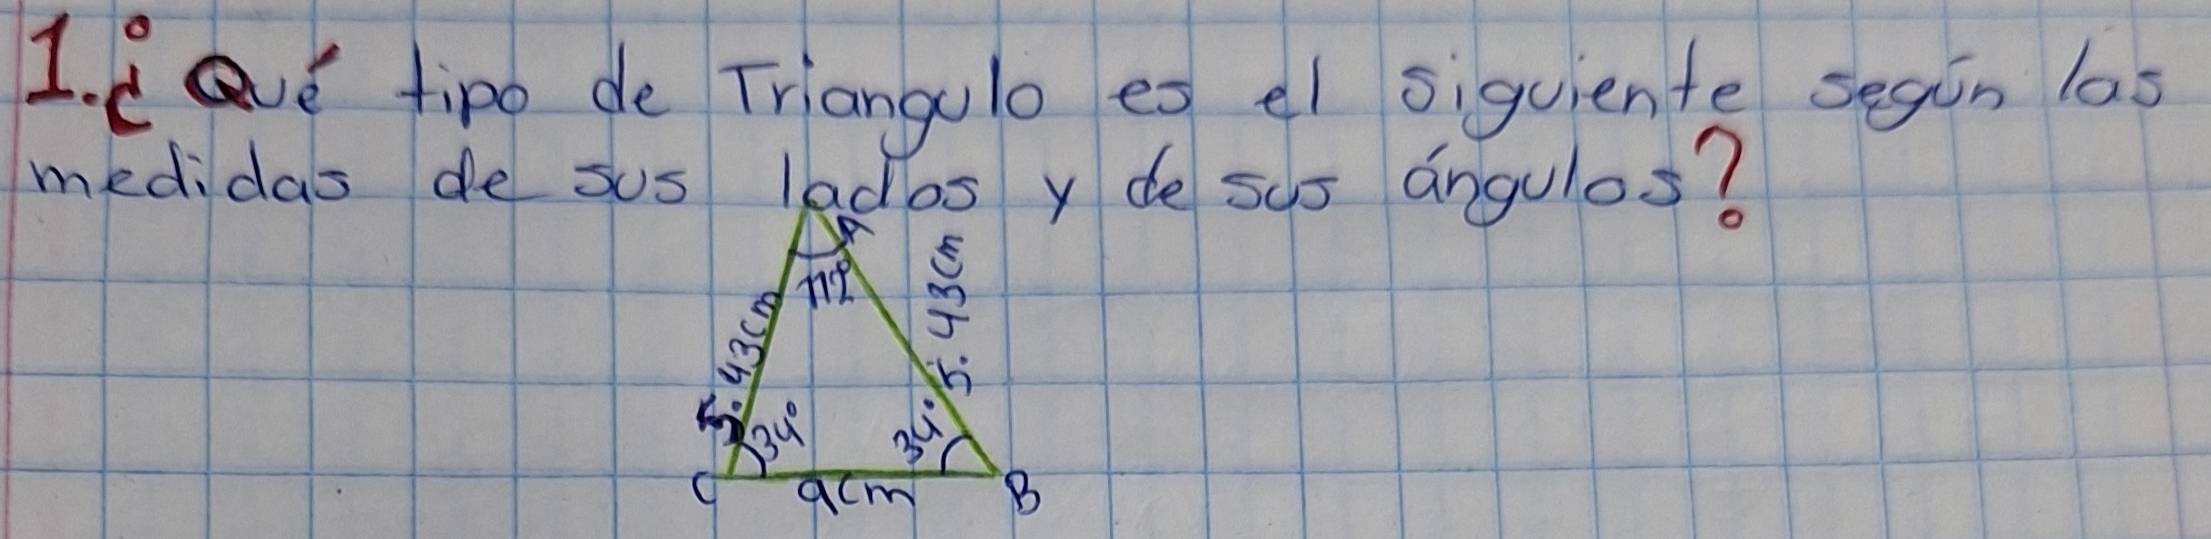 1. ¿Qué tipo de Triangulo es el siguiente según las
medidas de sus lados y de sus ángulos?
A
112°
5.43cm
5.43cm
34°
34°
C
9cm
B